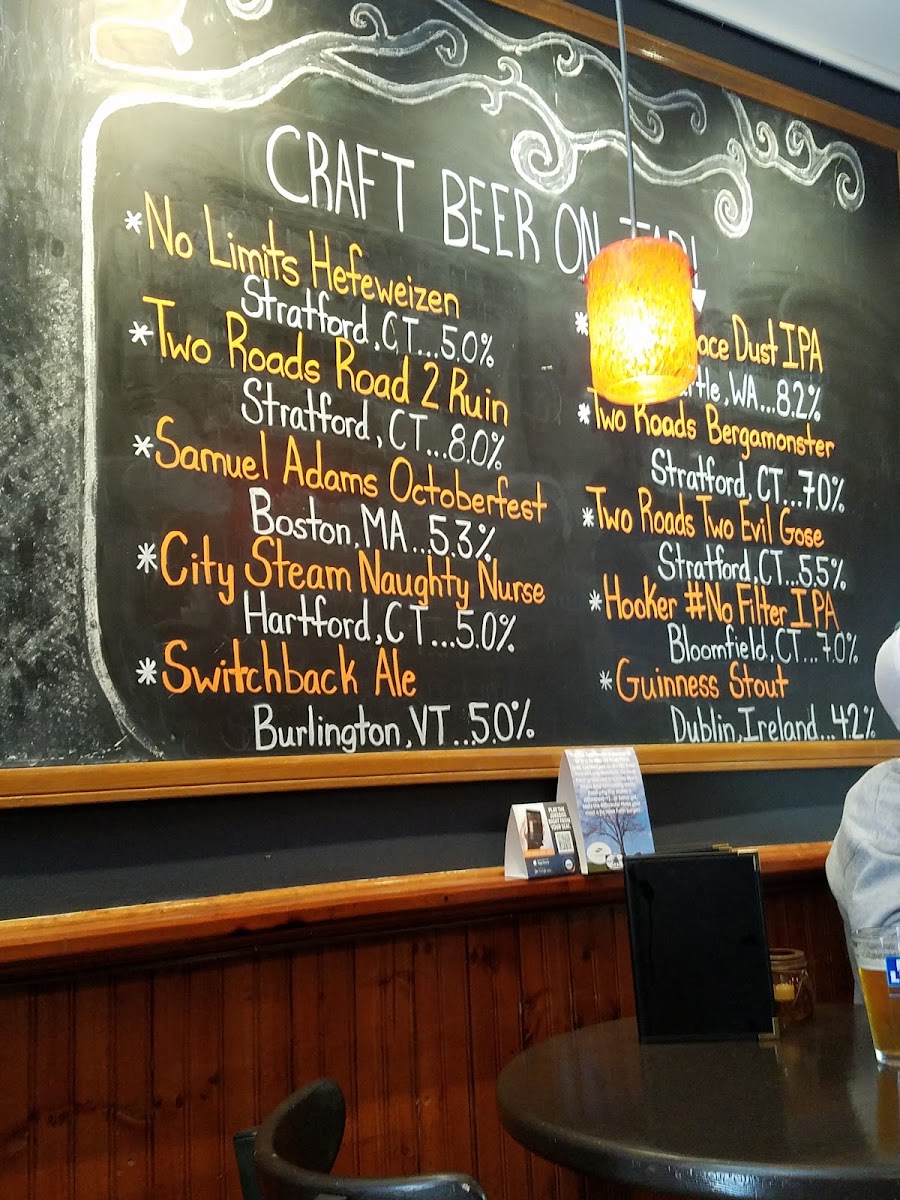 CRAFT BEER ON TAP!
*No Limits Hefeweizen
Stratford, CT...5.0%
*Two Roads Road 2 Ruin
Stratford, CT...8.0%
*Samuel Adams Octoberfest
Boston, MA...5.3%
*City Steam Naughty Nurse
Hartford, CT...5.0%
*Switchback Ale
Burlington, VT...5.0%
*ace Dust IPA
ttle, WA...8.2%
*Two Roads Bergamonster
Stratford, CT...7.0%
*Two Roads Two Evil Gose
Stratford, CT...5.5%
*Hooker #No Filter IPA
Bloomfield, CT...7.0%
*Guinness Stout
Dublin, Ireland...4.2%
PLAY THE
JUKEBOX
RIGHT FROM
YOUR SEAT.